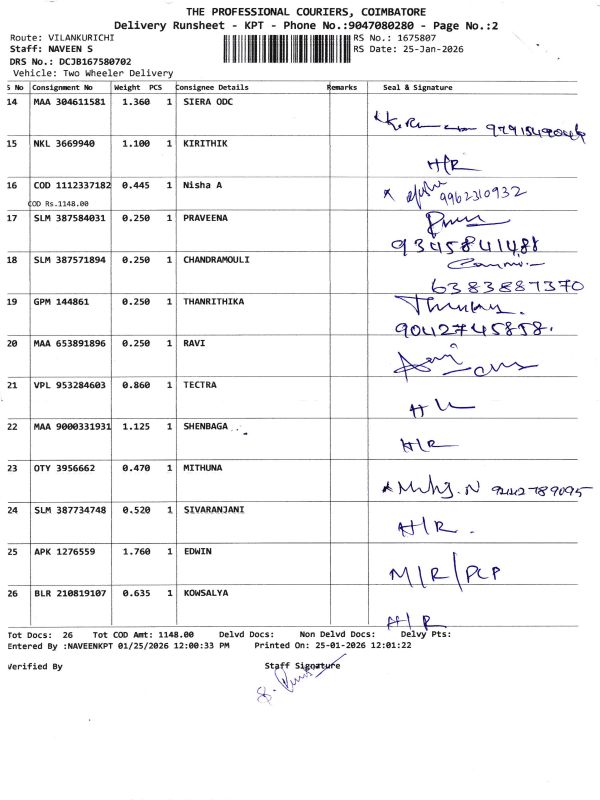 THE PROFESSIONAL COURIERS, COIMBATORE
Delivery Runsheet - KPT - Phone No.:9047080280 - Page No.:2
Route: VILANKURICHI
RS No.: 1675807
Staff: NAVEEN S
RS Date: 25-Jan-2026
DRS No.: DCJB167580702
Vehicle: Two Wheeler Delivery
S No Consignment No Weight PCS Consignee Details Remarks Seal & Signature
14 MAA 304611581 1.360 1 SIERA ODC
15 NKL 3669940 1.100 1 KIRITHIK
H/R
16 COD 1112337182 0.445 1 Nisha A
9962310932
COD Rs.1148.00
17 SLM 387584031 0.250 1 PRAVEENA
9345841488
18 SLM 387571894 0.250 1 CHANDRAMOULI
6383887370
19 GPM 144861 0.250 1 THANRITHIKA
9042745858.
20 MAA 653891896 0.250 1 RAVI
21 VPL 953284603 0.860 1 TECTRA
22 MAA 9000331931 1.125 1 SHENBAGA
H/R
23 OTY 3956662 0.470 1 MITHUNA
24 SLM 387734748 0.520 1 SIVARANJANI
H/R.
25 APK 1276559 1.760 1 EDWIN
M/R/PCP
26 BLR 210819107 0.635 1 KOWSALYA
H/R
Tot Docs: 26 Tot COD Amt: 1148.00 Delvd Docs: Non Delvd Docs: Delvy Pts:
Entered By :NAVEENKPT 01/25/2026 12:00:33 PM Printed On: 25-01-2026 12:01:22
Verified By Staff Signature